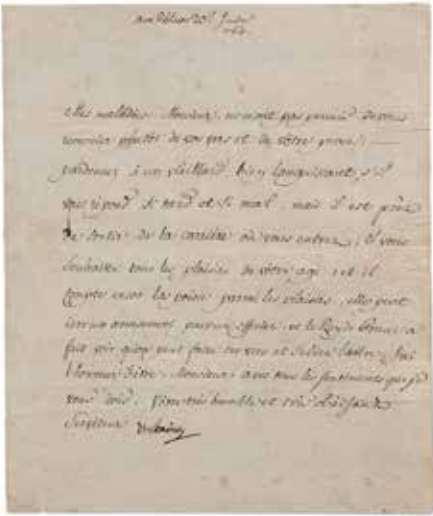 aux Délices 20e
Mes maladies, Monsieur, ne m'ont pas permis de vous
remercier plutôt de vos vers et de vôtre prose;
pardonnez à un vieillard bien languissant, s'il
vous répond si tard et si mal. mais il est près
de sortir de la carrière où vous entrez; il vous
souhaite tous les plaisirs de vôtre age; et il
compte encor la poësie parmi les plaisirs, elle peut
être un ornement pour un officier, et le Roy de Prusse a
fait voir qu'on peut faire des vers et se bien battre. J'ai
l'honneur d'être, Monsieur, avec tous les sentiments que je
vous dois, Vôtre très humble et très obéissant
Serviteur Voltaire